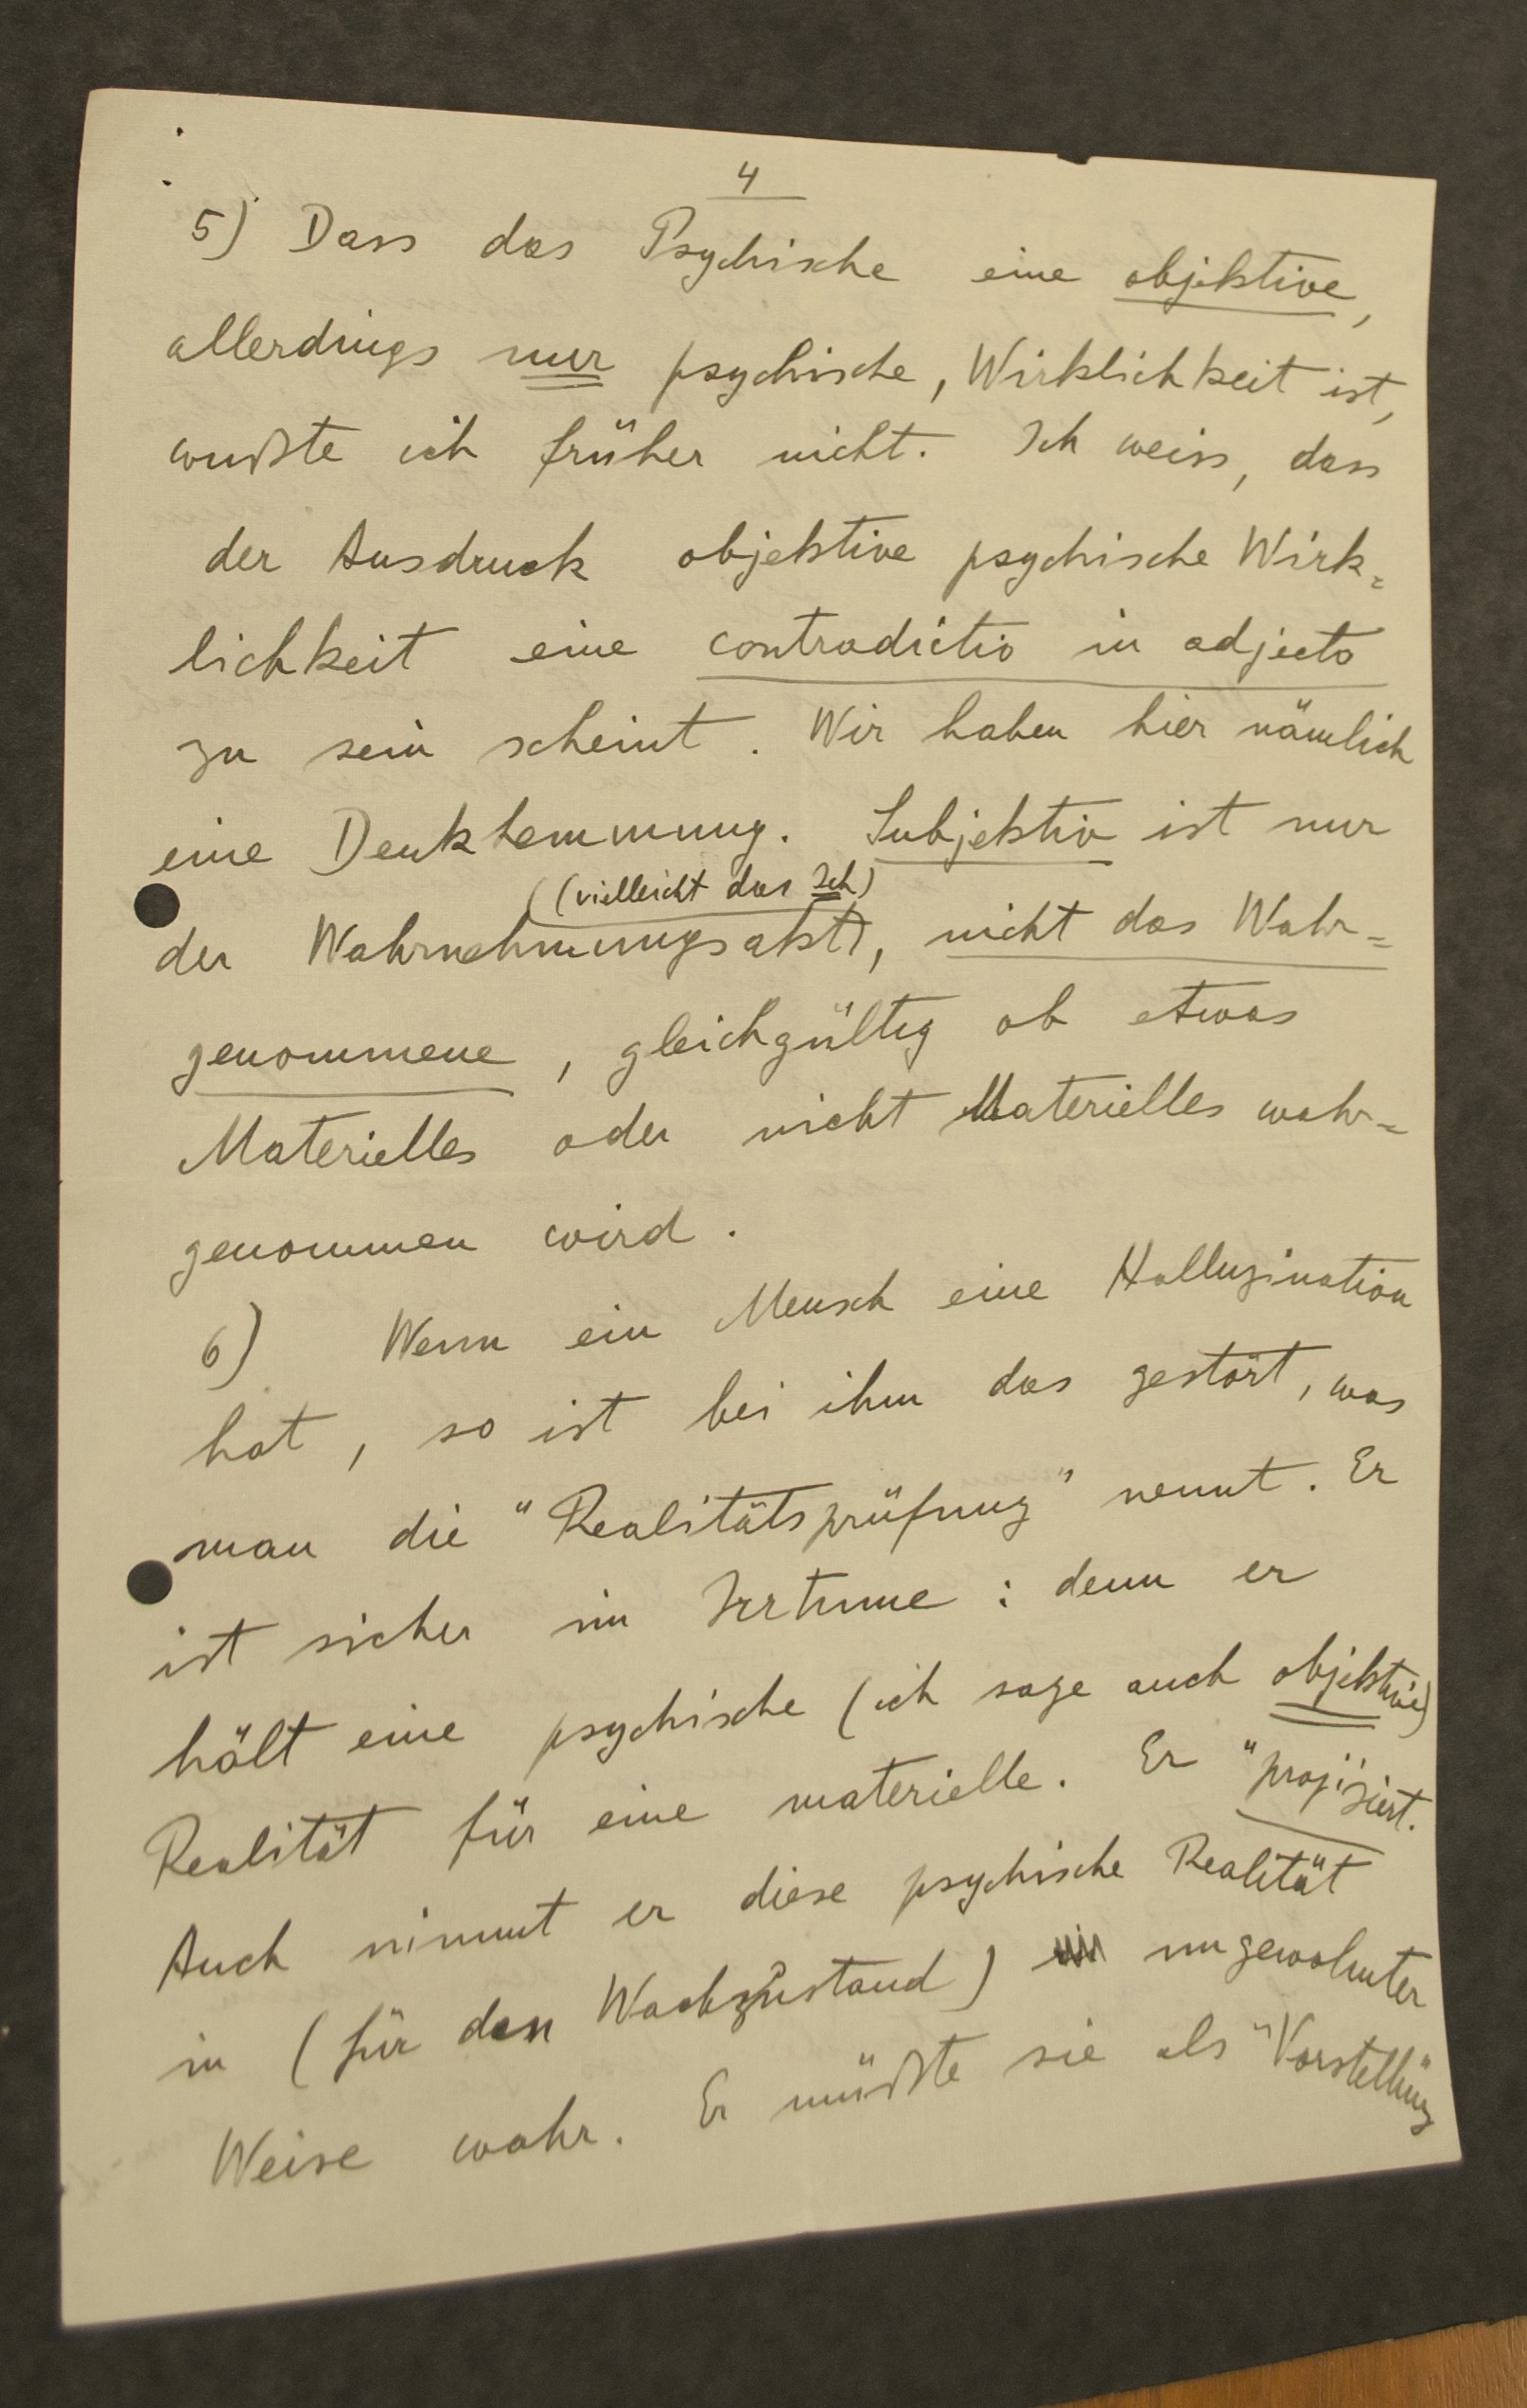 4
5) Dass das Psychische eine objektive,
allerdings nur psychische, Wirklichkeit ist,
wußte ich früher nicht. Ich weiss, dass
der Ausdruck objektive psychische Wirk=
lichkeit eine contradictio in adjecto
zu sein scheint. Wir haben hier nämlich
eine Denkhemmung. Subjektiv ist nur
((vielleicht das Ich)
der Wahrnehmungsakt), nicht das Wahr=
genommene, gleichgültig ob etwas
Materielles oder nicht Materielles wahr=
genommen wird.
6) Wenn ein Mensch eine Halluzination
hat, so ist bei ihm das gestört, was
man die "Realitätsprüfung" nennt. Er
ist sicher im Irrtume: denn er
hält eine psychische (ich sage auch objektive)
Realität für eine materielle. Er "projiziert.
Auch nimmt er diese psychische Realität
in (für den Wachzustand) ungewohnter
Weise wahr. Er müßte sie als "Vorstellung"